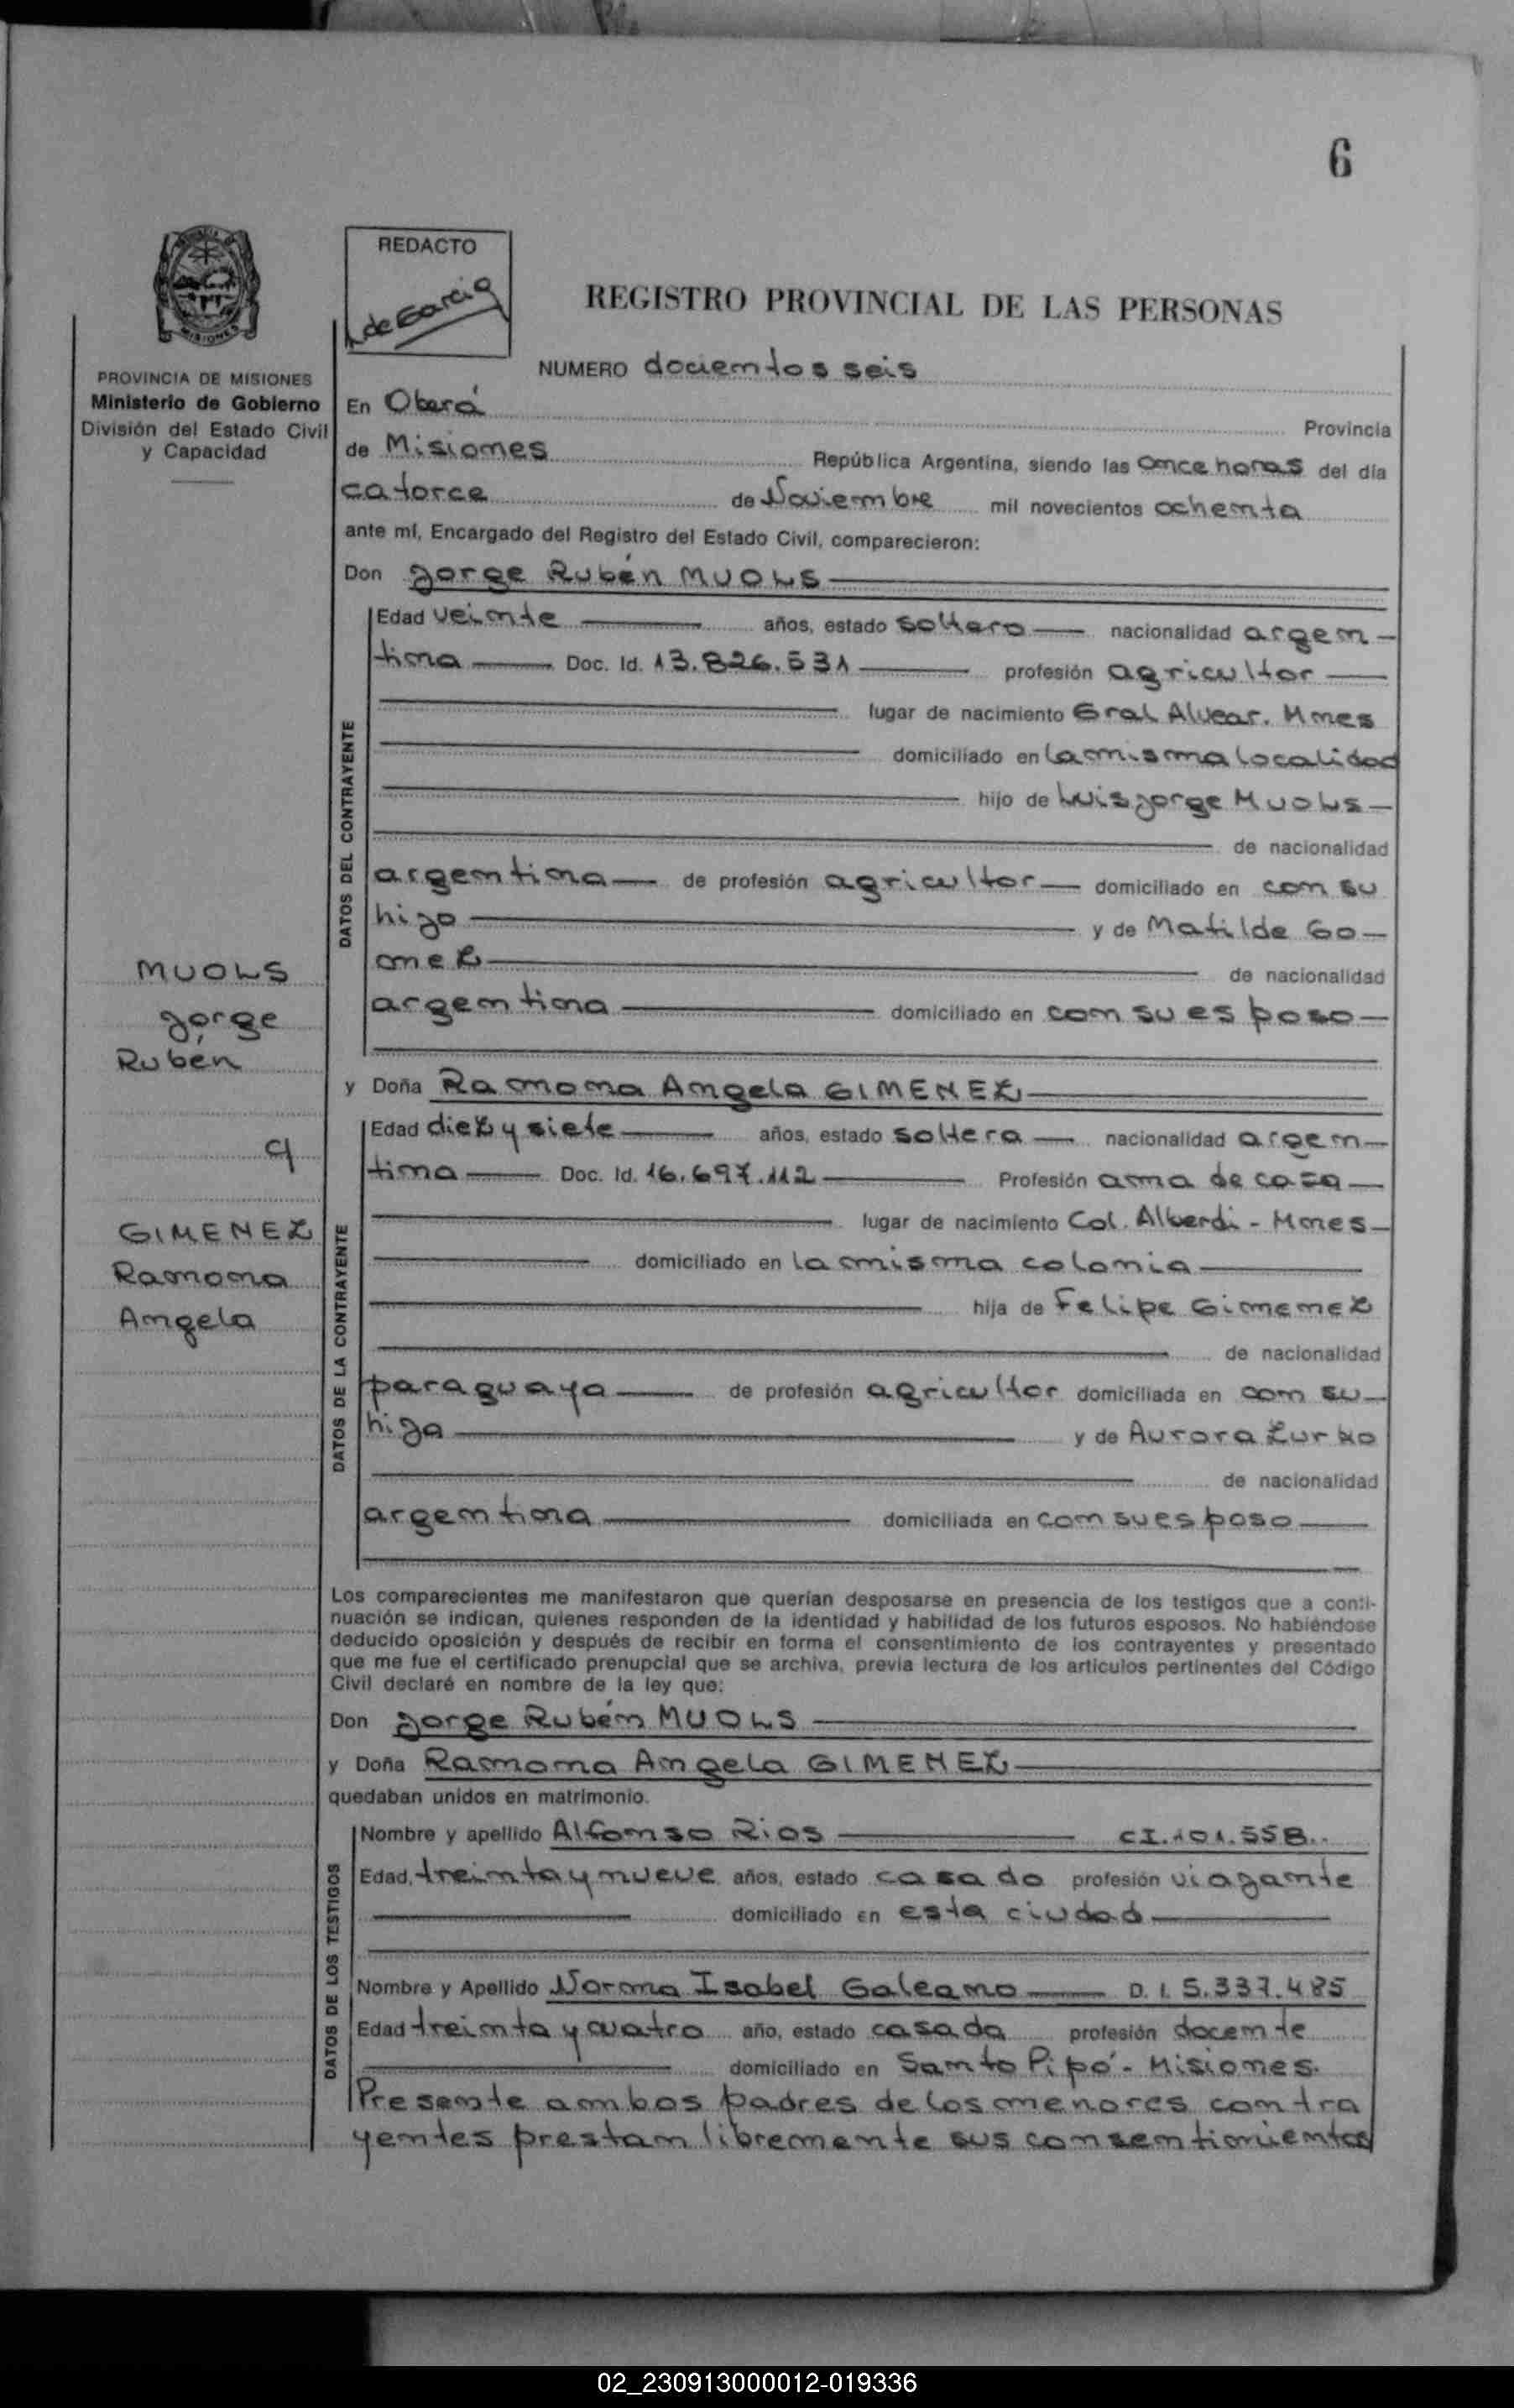 6
REDACTO
de Garcia
REGISTRO PROVINCIAL DE LAS PERSONAS
MISIONES
PROVINCIA DE MISIONES
Ministerio de Gobierno
División del Estado Civil
y Capacidad
NUMERO docientos seis
En Oberá Provincia
de Misiones República Argentina, siendo las once horas del día
catorce de Noviembre mil novecientos ochenta
ante mí, Encargado del Registro del Estado Civil, comparecieron:
Don Jorge Rubén MUOLS
DATOS DEL CONTRAYENTE
Edad veinte años, estado soltero nacionalidad argen-
tina Doc. Id. 13.826.531 profesión agricultor
lugar de nacimiento Gral Alvear. Mnes
domiciliado en la misma localidad
hijo de Luis Jorge Muols
de nacionalidad
argentina de profesión agricultor domiciliado en con su
hijo y de Matilde Go-
mez de nacionalidad
argentina domiciliado en con su esposo
MUOLS
Jorge
Rubén
c/
GIMENEZ
Ramona
Angela
y Doña Ramona Angela GIMENEZ
DATOS DE LA CONTRAYENTE
Edad diez y siete años, estado soltera nacionalidad argen-
tina Doc. Id. 16.697.112 Profesión ama de casa
lugar de nacimiento Col. Alberdi - Mnes
domiciliado en la misma colonia
hija de Felipe Gimenez
de nacionalidad
paraguaya de profesión agricultor domiciliada en con su
hija y de Aurora
de nacionalidad
argentina domiciliada en con su esposo
Los comparecientes me manifestaron que querían desposarse en presencia de los testigos que a conti-
nuación se indican, quienes responden de la identidad y habilidad de los futuros esposos. No habiéndose
deducido oposición y después de recibir en forma el consentimiento de los contrayentes y presentado
que me fue el certificado prenupcial que se archiva, previa lectura de los artículos pertinentes del Código
Civil declaré en nombre de la ley que:
Don Jorge Rubén MUOLS
y Doña Ramona Angela GIMENEZ
quedaban unidos en matrimonio.
DATOS DE LOS TESTIGOS
Nombre y apellido Alfonso Rios CI. 101.558..
Edad, treinta y nueve años, estado casado profesión viajante
domiciliado en esta ciudad
Nombre y Apellido Norma Isabel Galeano D.I. 5.337.485
Edad treinta y cuatro año, estado casada profesión docente
domiciliado en Santo Pipó - Misiones.
Presente ambos padres de los menores contra
yentes prestan libremente sus consentimientos
02_230913000012-019336